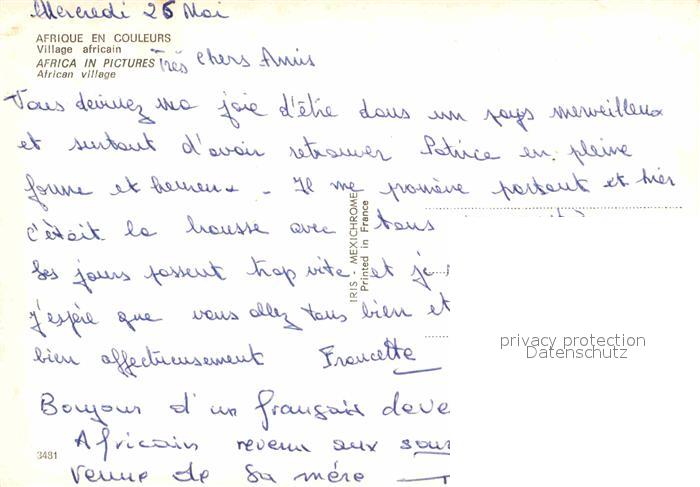 Mercredi 25 Mai
AFRIQUE EN COULEURS
Village africain
AFRICA IN PICTURES
African village
Très chers Amis
Vous devinez ma joie d'être dans un pays merveilleux
et surtout d'avoir retrouver Patrice en pleine
forme et heureux - Il me promène partout et hier
c'était la brousse avec tous
les jours passent trop vite et je
j'espère que vous allez tous bien et
bien affectueusement Francette
Bonjour d'un français deve
Africain revenu aux sour
venue de sa mère
IRIS - MEXICHROME
Printed in France
3481
privacy protection
Datenschutz